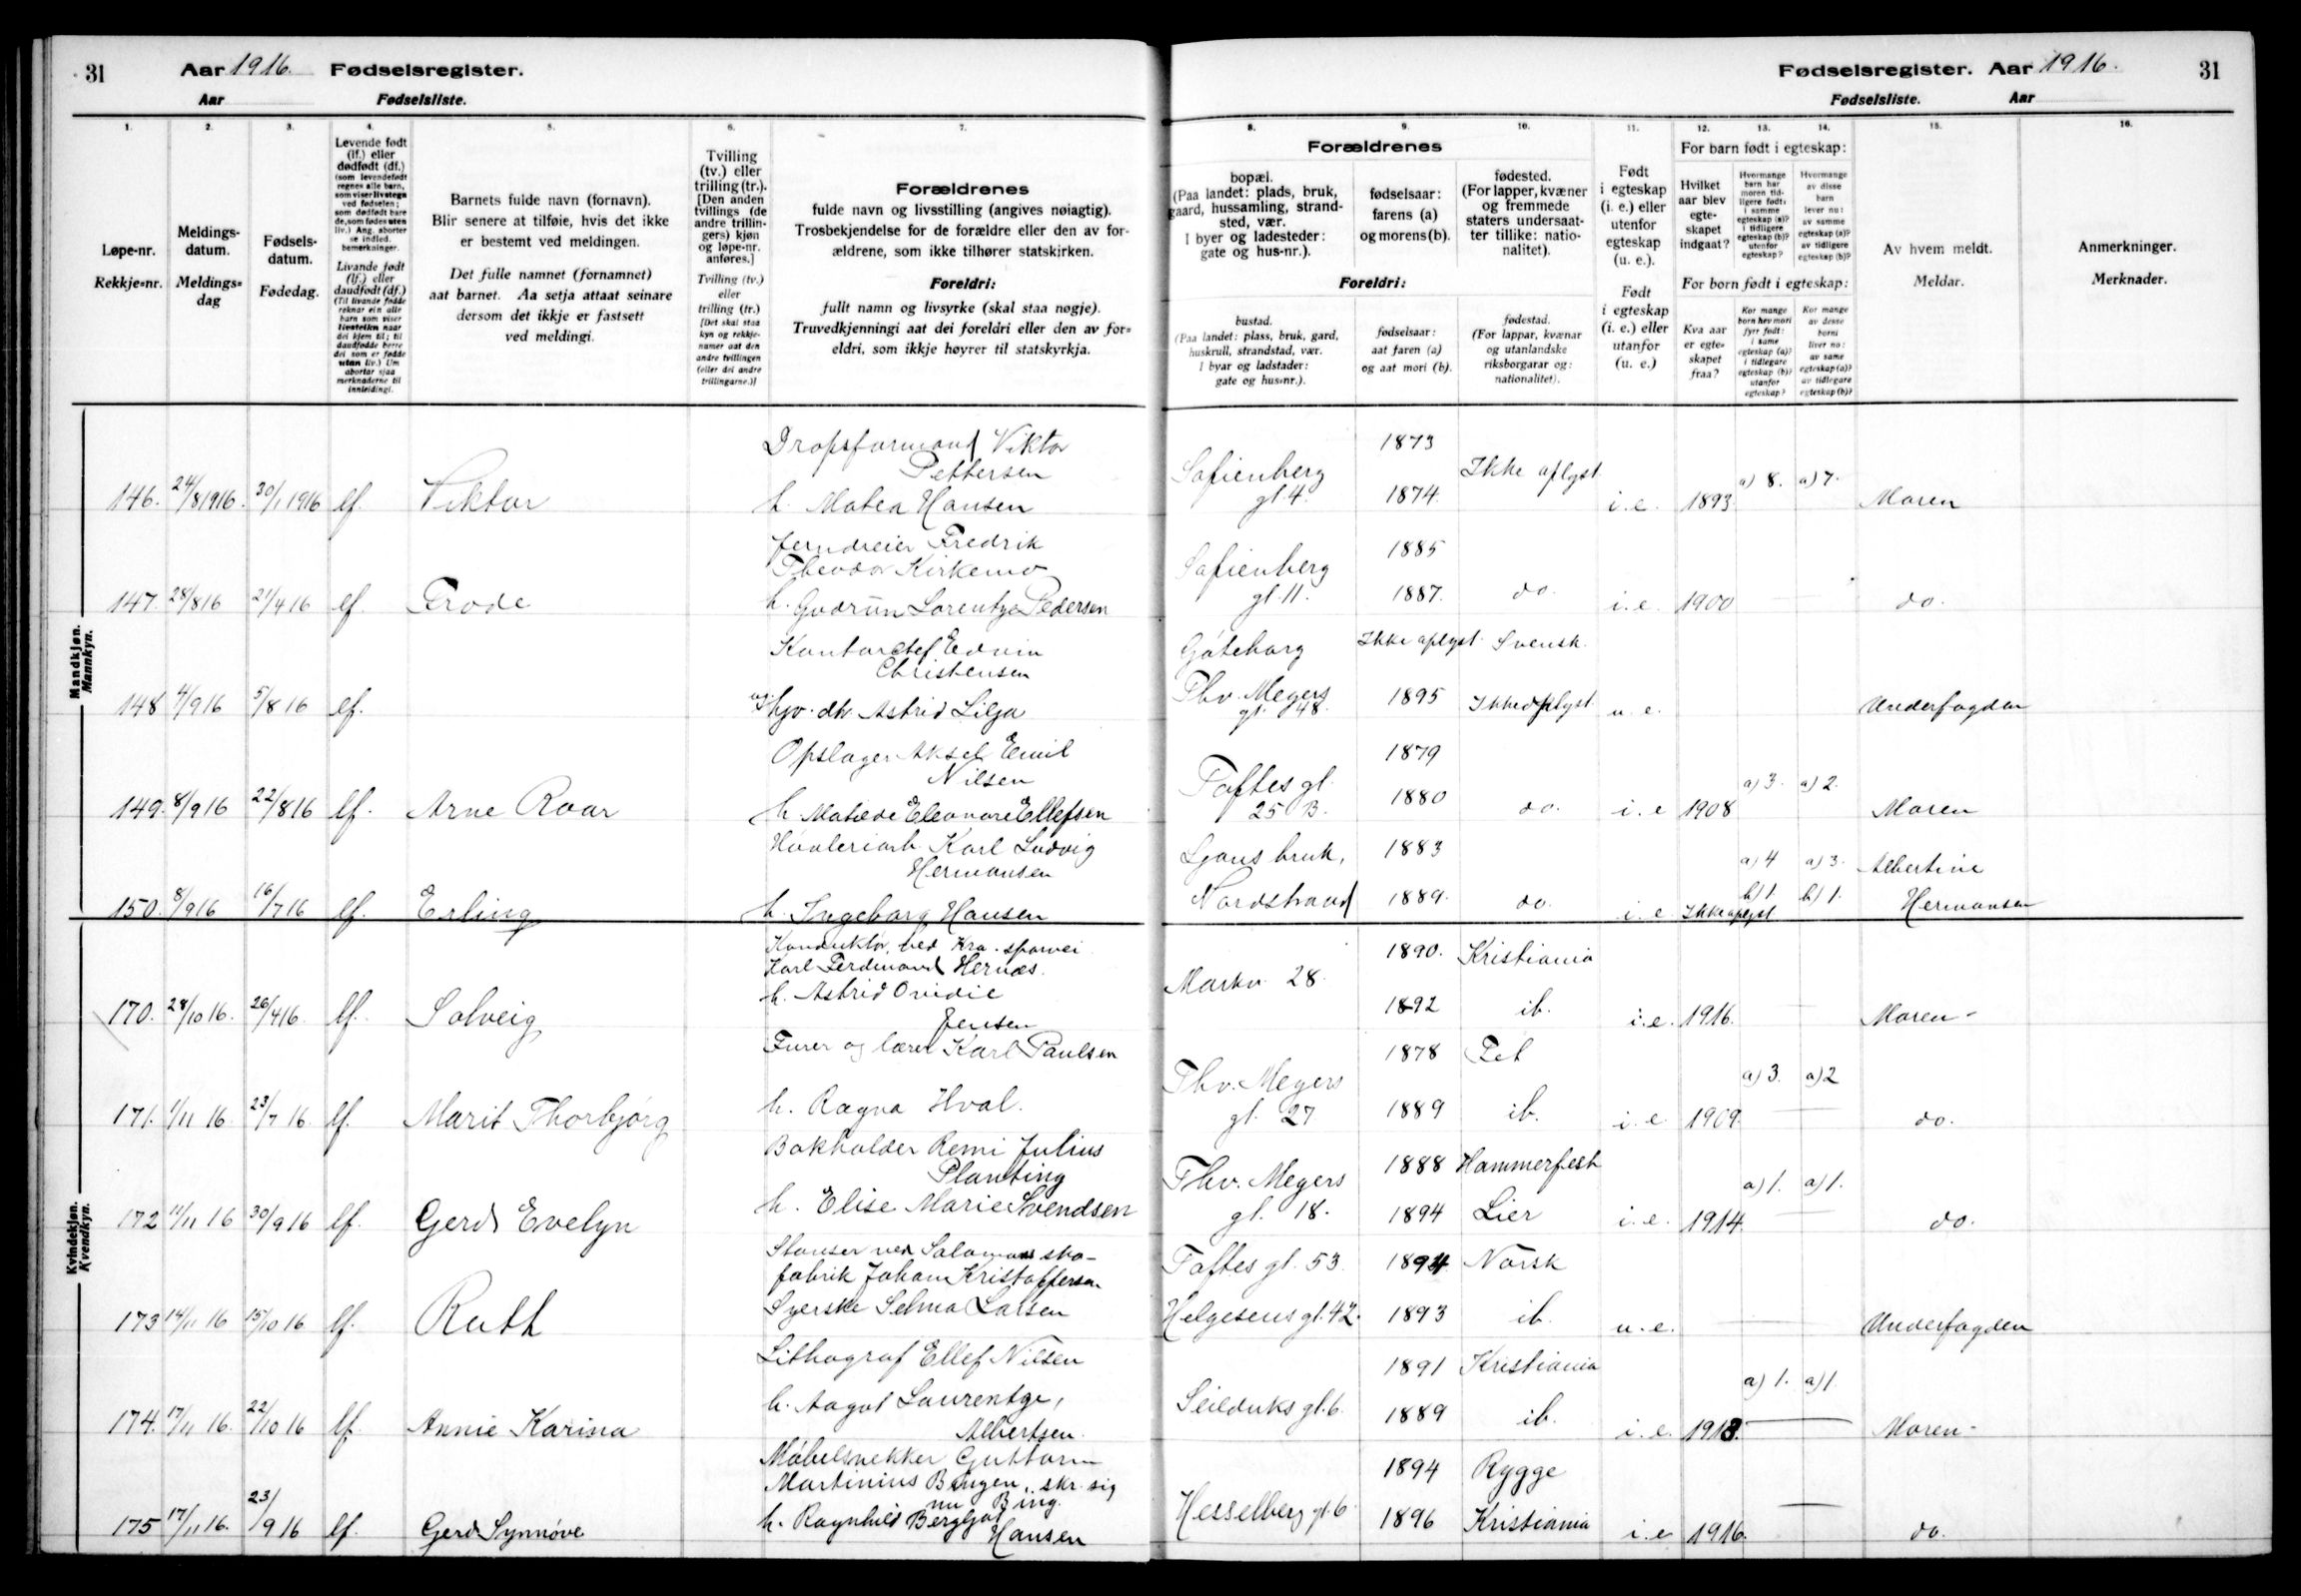 31
Aar 1916. Fødselsregister.
Aar Fødselsliste.
1.
2.
3.
4.
5.
6.
7.
Løpe-nr.
Rekkje=nr.
Meldings-
datum.
Meldings=
dag
Fødsels-
datum.
Fødedag.
Levende født
(lf.) eller
dødfødt (df.)
(som levendefødt
regnes alle barn,
som viser livstegn
ved fødselen;
som dødfødt bare
de, som fødes uten
liv.) Ang. aborter
se indled.
bemerkninger.
Livande født
(lf.) eller
daudfødt (df.)
(Til livande fødde
reknar ein alle
barn som viser
livsteikn naar
dei kjem til; til
daudfødde berre
dei som er fødde
utan liv.) Um
abortar sjaa
merknaderne til
innleiding!.
Barnets fulde navn (fornavn).
Blir senere at tilføie, hvis det ikke
er bestemt ved meldingen.
Det fulle namnet (fornamnet)
aat barnet. Aa setja attaat seinare
dersom det ikkje er fastsett
ved meldingi.
Tvilling
(tv.) eller
trilling (tr.).
[Den anden
tvillings (de
andre trillin-
gers) kjøn
og løpe-nr.
anføres.]
Tvilling (tv.)
eller
trilling (tr.)
[Det skal staa
kyn og rekkje-
numer aat den
andre tvillingen
(eller dei andre
trillingarne.)]
Forældrenes
fulde navn og livsstilling (angives nøiagtig).
Trosbekjendelse for de forældre eller den av for-
ældrene, som ikke tilhører statskirken.
Foreldri:
fullt namn og livsyrke (skal staa nøgje).
Truvedkjenningi aat dei foreldri eller den av for=
eldri, som ikkje høyrer til statskyrkja.
Mandkjøn.
Mannkyn.
146. 24/8 1916. 30/1 1916 lf. Viktor
Dropsformand Viktor
Pettersen
h. Matea Hansen
147. 28/8 16 21/4 16 lf. Frode
Jerndreier Fredrik
Theodor Kirkemo
h. Gudrun Lorentze Pedersen
148 4/9 16 5/8 16 lf.
Kontorchef Edvin
Christensen
ug. hjv. dtr. Astrid Lilja
149. 8/9 16 22/8 16 lf. Arne Roar
Opslager Aksel Emil
Nilsen
h. Matilde Eleonore Ellefsen
150. 8/9 16 16/7 16 lf. Erling
Høvleriarb. Karl Ludvig
Hermansen
h. Ingeborg Hansen
Kvindekjøn.
Kvendkyn.
170. 28/10 16. 26/4 16. lf. Solveig
Konduktør ved Kra. sporvei
Karl Ferdinand Hernæs.
h. Astrid Ovidie
Jensen
171. 1/11 16 23/7 16. lf. Marit Thorbjørg
Furer og lærer Karl Paulsen
h. Ragna Hval.
172 11/11 16 30/9 16 lf. Gerd Evelyn
Bokholder Remi Julius
Planting
h. Elise Marie Svendsen
173 14/11 16 15/10 16 lf. Ruth
Stanser ved Salomons sko-
fabrik Johan Kristoffersen
Syerske Selma Larsen
174. 17/11 16. 22/10 16 lf. Annie Karina
Lithograf Ellef Nilsen
h. Aagot Laurentze,
Albertsen.
175 17/11 16. 23/9 16 lf. Gerd Synnøve
Møbelsnekker Guttorm
Martinius Bengen, skr. sig
nu Bing.
h. Ragnhild Bergljot
Hansen
Fødselsregister. Aar 1916. 31
Fødselsliste. Aar
8.
9.
10.
11.
12.
13.
14.
15.
16.
Forældrenes
bopæl.
(Paa landet: plads, bruk,
gaard, hussamling, strand-
sted, vær.
I byer og ladesteder:
gate og hus-nr.).
fødselsaar:
farens (a)
og morens (b).
fødested.
(For lapper, kvæner
og fremmede
staters undersaat-
ter tillike: natio-
nalitet).
Foreldri:
bustad.
(Paa landet: plass, bruk, gard,
huskrull, strandstad, vær.
I byar og ladstader:
gate og hus=nr.).
fødselsaar:
aat faren (a)
og aat mori (b).
fødestad.
(For lappar, kvænar
og utanlandske
riksborgarar og:
nationalitet).
Født
i egteskap
(i. e.) eller
utenfor
egteskap
(u. e.).
Født
i egteskap
(i. e.) eller
utanfor
(u. e.)
For barn født i egteskap:
Hvilket
aar blev
egte-
skapet
indgaat?
Hvormange
barn har
moren tid-
ligere født:
i samme
egteskap (a)?
i tidligere
egteskap (b)?
utenfor
egteskap?
Hvormange
av disse
barn
lever nu:
av samme
egteskap (a)?
av tidligere
egteskap (b)?
For born født i egteskap:
Kva aar
er egte=
skapet
fraa?
Kor mange
born hev mori
fyrr født:
i same
egteskap (a)?
i tidlegare
egteskap (b)?
utanfor
egteskap?
Kor mange
av desse
borni
liver no:
av same
egteskap (a)?
av tidlegare
egteskap (b)?
Av hvem meldt.
Meldar.
Anmerkninger.
Merknader.
Sofienberg
gt. 4.
1873
1874.
Ikke oplyst
i. e. 1893. a) 8. a) 7. Moren
Sofienberg
gt. 11.
1885
1887. do. i. e. 1900 do.
Göteborg Ikke oplyst. Svensk.
Thv. Meyers
gt. 48. 1895 Ikke oplyst. u. e. Underfogden
Toftes gt.
25 B.
1879
1880 do. i. e 1908 a) 3. a) 2. Moren
Ljans bruk,
Nordstrand
1883
1889. do. i. e. Ikke oplyst
a) 4 a) 3.
b) 1. b) 1.
Albertine
Hermansen
Markv. 28.
1890. Kristiania
1892 ib. i. e. 1916. Moren -
Thv. Meyers
gt. 27
1878 Fet
1889 ib. i. e. 1909. a) 3. a) 2 do.
Thv. Meyers
gt. 18.
1888 Hammerfest
1894 Lier i. e. 1914. a) 1. a) 1. do.
Toftes gt. 53 1894 Norsk
Helgesens gt. 42. 1893 ib. u. e. Underfogden
Seilduks gt. 6.
1891 Kristiania
1889 ib. i. e. 1913. a) 1. a) 1. Moren -
Hesselberg gt. 6
1894 Rygge
1896 Kristiania i. e 1916. do.